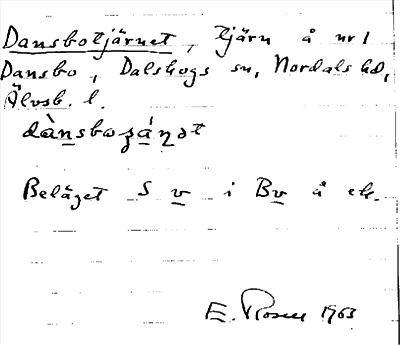 Dansbotjärnet, tjärn å nr 1
Dansbo, Dalskogs sn, Nordals hd,
Älvsb. l.
Beläget S v i Bv å ek.
E. Rosen 1963